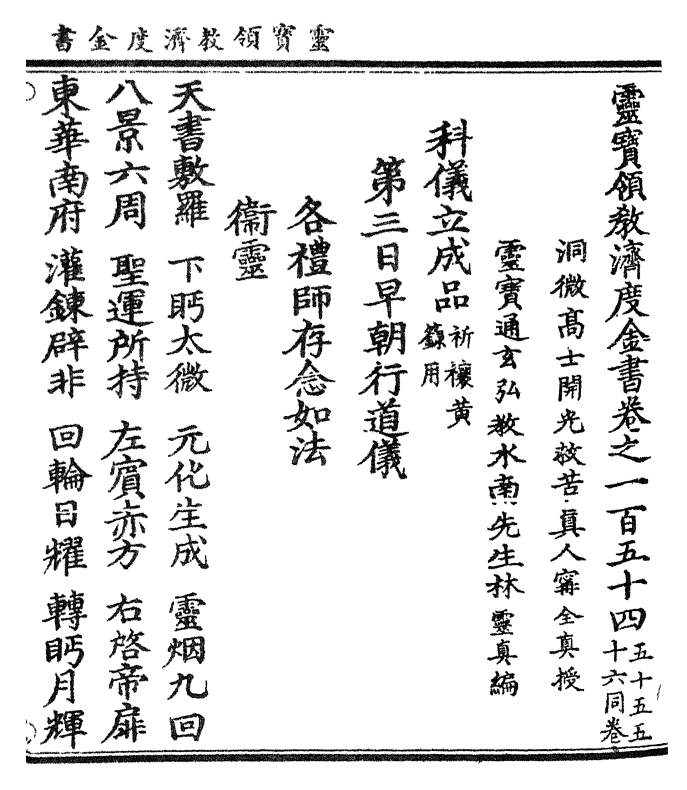 靈寶領教濟度金書
靈寶領教濟度金書卷之一百五十四 五十五五十六同卷
洞微高士開光救苦真人寗全真授
靈寶通玄弘教水南先生林靈真編
科儀立成品 祈禳黄籙用
第三日早朝行道儀
各禮師存念如法
衞靈
天書敷羅 下眄太微 元化生成 靈烟九回
八景六周 聖運所持 左賓赤方 右啓帝扉
東華南府 灌鍊辟非 回輪日耀 轉眄月輝